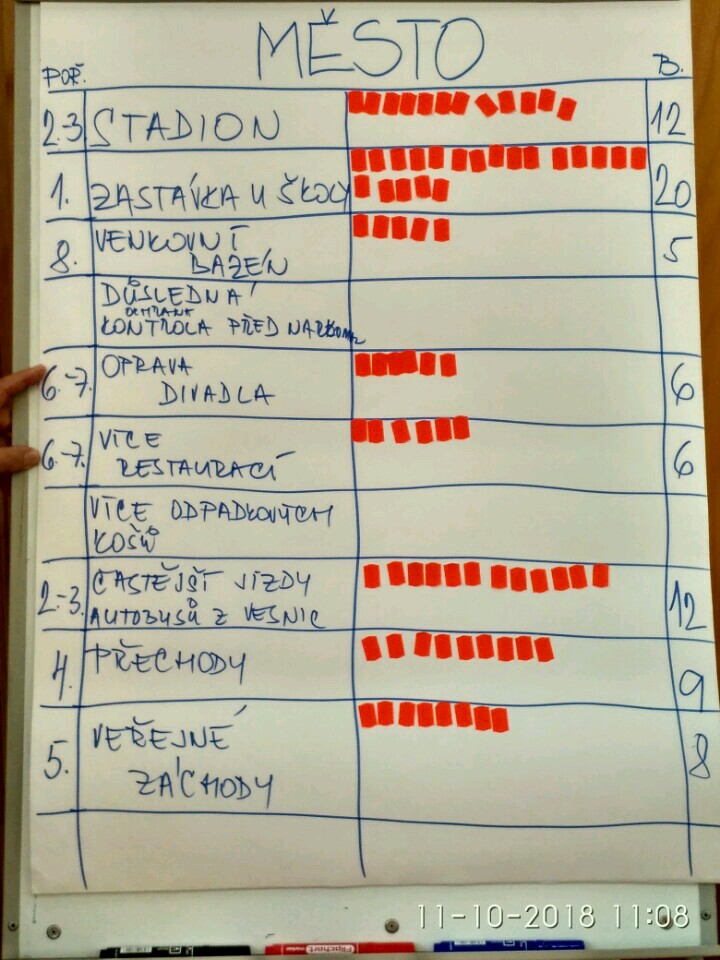 MĚSTO
POŘ. B.
2-3 STADION 12
1. ZASTÁVKA U ŠKOLY 20
8. VENKOVNÍ 5
BAZÉN
DŮSLEDNÁ
OCHRANA
KONTROLA PŘED
6.-7. OPRAVA 6
DIVADLA
6.-7. VÍCE 6
RESTAURACÍ
VÍCE ODPADKOVÝCH
KOŠŮ
2.-3. ČASTĚJŠÍ JÍZDY 12
AUTOBUSŮ Z VESNIC
4. PŘECHODY 9
5. VEŘEJNÉ 8
ZÁCHODY
Flipchart
marker
11-10-2018 11:08